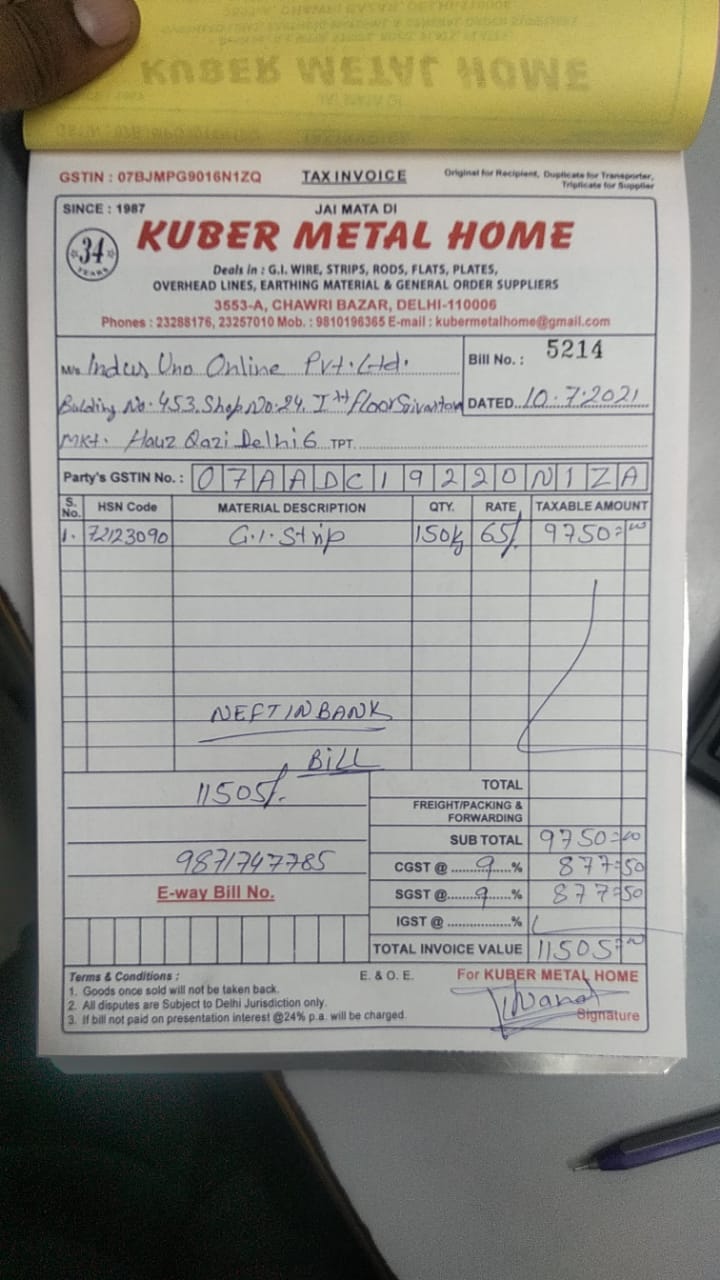 KUBER METAL HOME
GSTIN : 07BJMPG9016N1ZQ
TAX INVOICE
Original for Recipient, Duplicate for Transporter,
Triplicate for Supplier
SINCE : 1987
JAI MATA DI
34
YEARS
KUBER METAL HOME
Deals in : G.I. WIRE, STRIPS, RODS, FLATS, PLATES,
OVERHEAD LINES, EARTHING MATERIAL & GENERAL ORDER SUPPLIERS
3553-A, CHAWRI BAZAR, DELHI-110006
Phones : 23288176, 23257010 Mob. : 9810196365 E-mail : kubermetalhome@gmail.com
M/s Indus Uno Online Pvt. Ltd.
Bill No. : 5214
Building No. 453, Shop No. 24, Ist Floor
DATED 10.7.2021
Mkt. Hauz Qazi Delhi 6 TPT.
Party's GSTIN No. : 07AADC19220N1ZA
S. No. HSN Code MATERIAL DESCRIPTION QTY. RATE TAXABLE AMOUNT
1. 72123090 G.I. Strip 150kg 65/. 9750=00
NEFT IN BANK
BILL
11505/.
TOTAL
FREIGHT/PACKING &
FORWARDING
SUB TOTAL 9750=00
9871747785
CGST @ 9 % 877=50
E-way Bill No.
SGST @ 9 % 877=50
IGST @ %
TOTAL INVOICE VALUE 11505=00
Terms & Conditions :
E. & O. E.
For KUBER METAL HOME
1. Goods once sold will not be taken back.
2. All disputes are Subject to Delhi Jurisdiction only.
3. If bill not paid on presentation interest @24% p.a. will be charged.
Signature